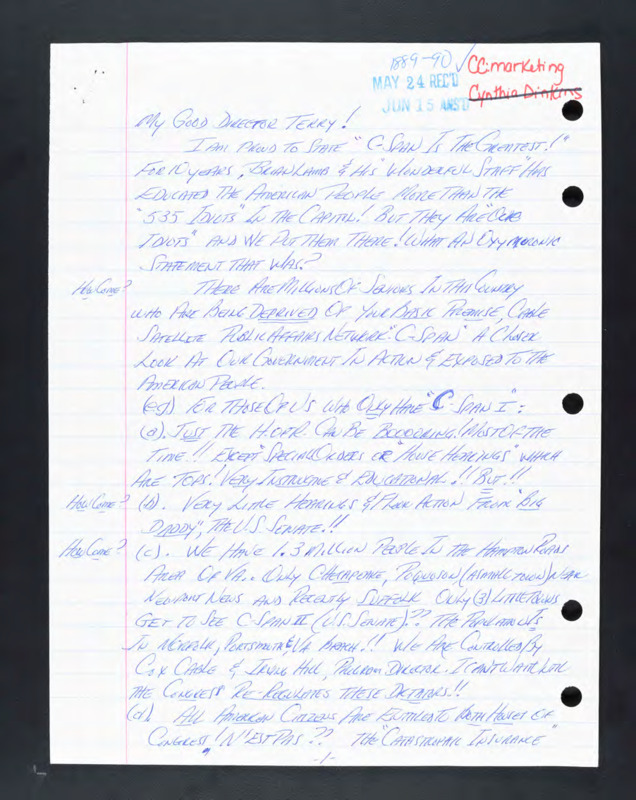 1889-90 ✓ CC: marketing
MAY 24 REC'D
Cynthia Dinkins
JUN 15 ANS'D
My Good Director Terry!
I Am Proud To State "C-Span Is The Greatest!"
For 10 years, Brian Lamb & His "Wonderful Staff" Has
Educated The American People More Than The
"535 Idiots" In The Capital! But They Are "Our
Idiots" And We Put Them There! What An Oxymoronic
Statement That Was?
How Come? There Are Millions Of Seniors In This Country
Who Are Being Deprived Of Your Basic Premise, Cable
Satellite Public Affairs Network "C-Span" A Closer
Look At Our Government In Action & Exposed To The
American People.
(eg) For Those Of Us Who Only Have "C-Span I":
(a). Just The H of R. Can Be Booooring! Most Of The
Time!! Except "Special Orders or "House Hearings" Which
Are Tops! Very Instructive & Educational!! But!!
How Come? (b). Very Little Hearings & Floor Action From "Big
Daddy", The U.S. Senate!!
How Come? (c). We Have 1.3 Million People In The Hampton Roads
Area Of Va.. Only Chesapeake, Poquoson (a small town) Near
Newport News And Recently Suffolk Only (3) Little Towns
Get To See C-Span II (U.S. Senate)?? The Population Is
In Norfolk, Portsmouth & Va Beach!! We Are Controlled By
Cox Cable & Irving Hill, Program Director. I Can't Wait Until
The Congress Re-Regulates These Dictators!!
(d) All American Citizens Are Entitled To Both Houses Of
Congress! N'est Pas?? The "Catastrophic Insurance"
-1-